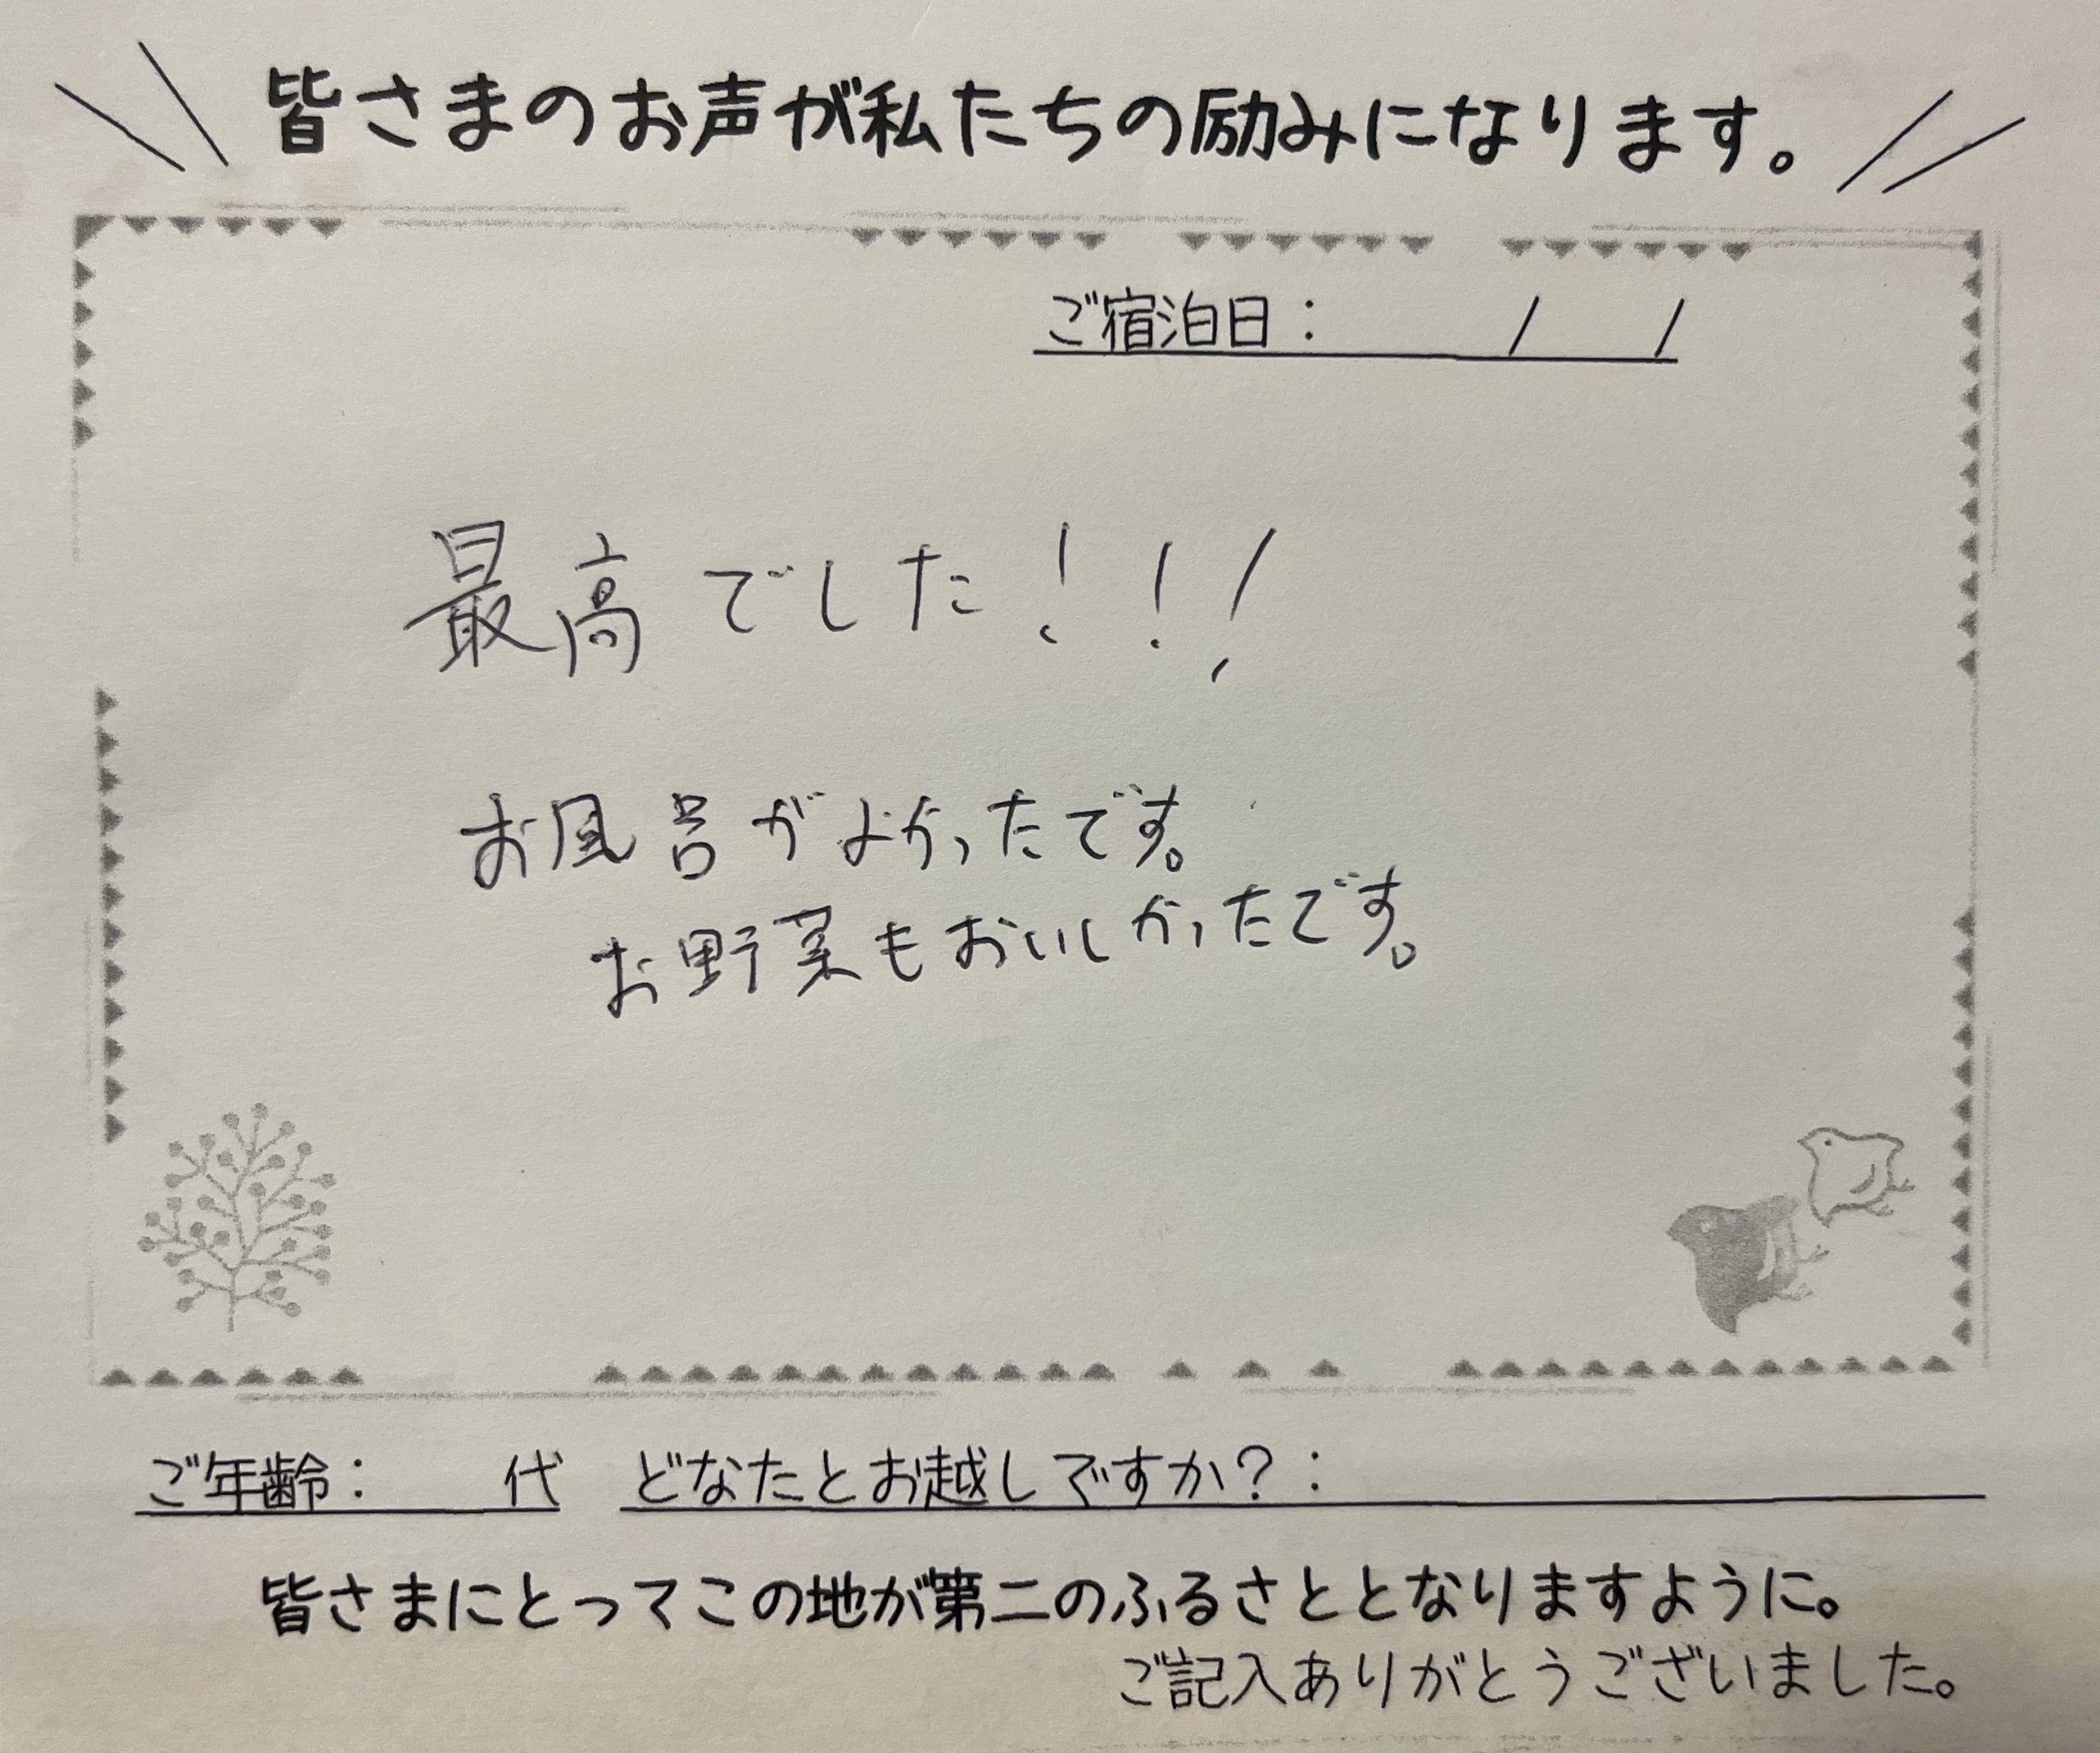 皆さまのお声が私たちの励みになります。
ご宿泊日: / /
最高でした!!!
お風呂がよかったです。
お野菜もおいしかったです。
ご年齢: 代 どなたとお越しですか?:
皆さまにとってこの地が第二のふるさととなりますように。
ご記入ありがとうございました。